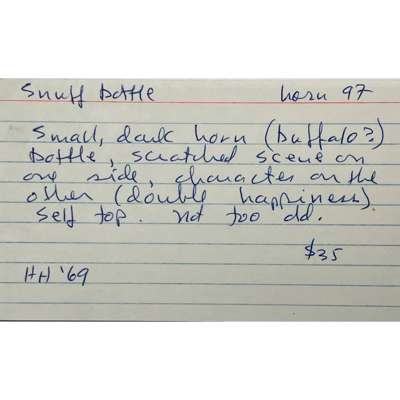 Snuff bottle horn 97
Small, dark horn (buffalo?)
bottle, scratched scene on
one side, character on the
other (double happiness).
Self top. not too old.
$35
HH '69